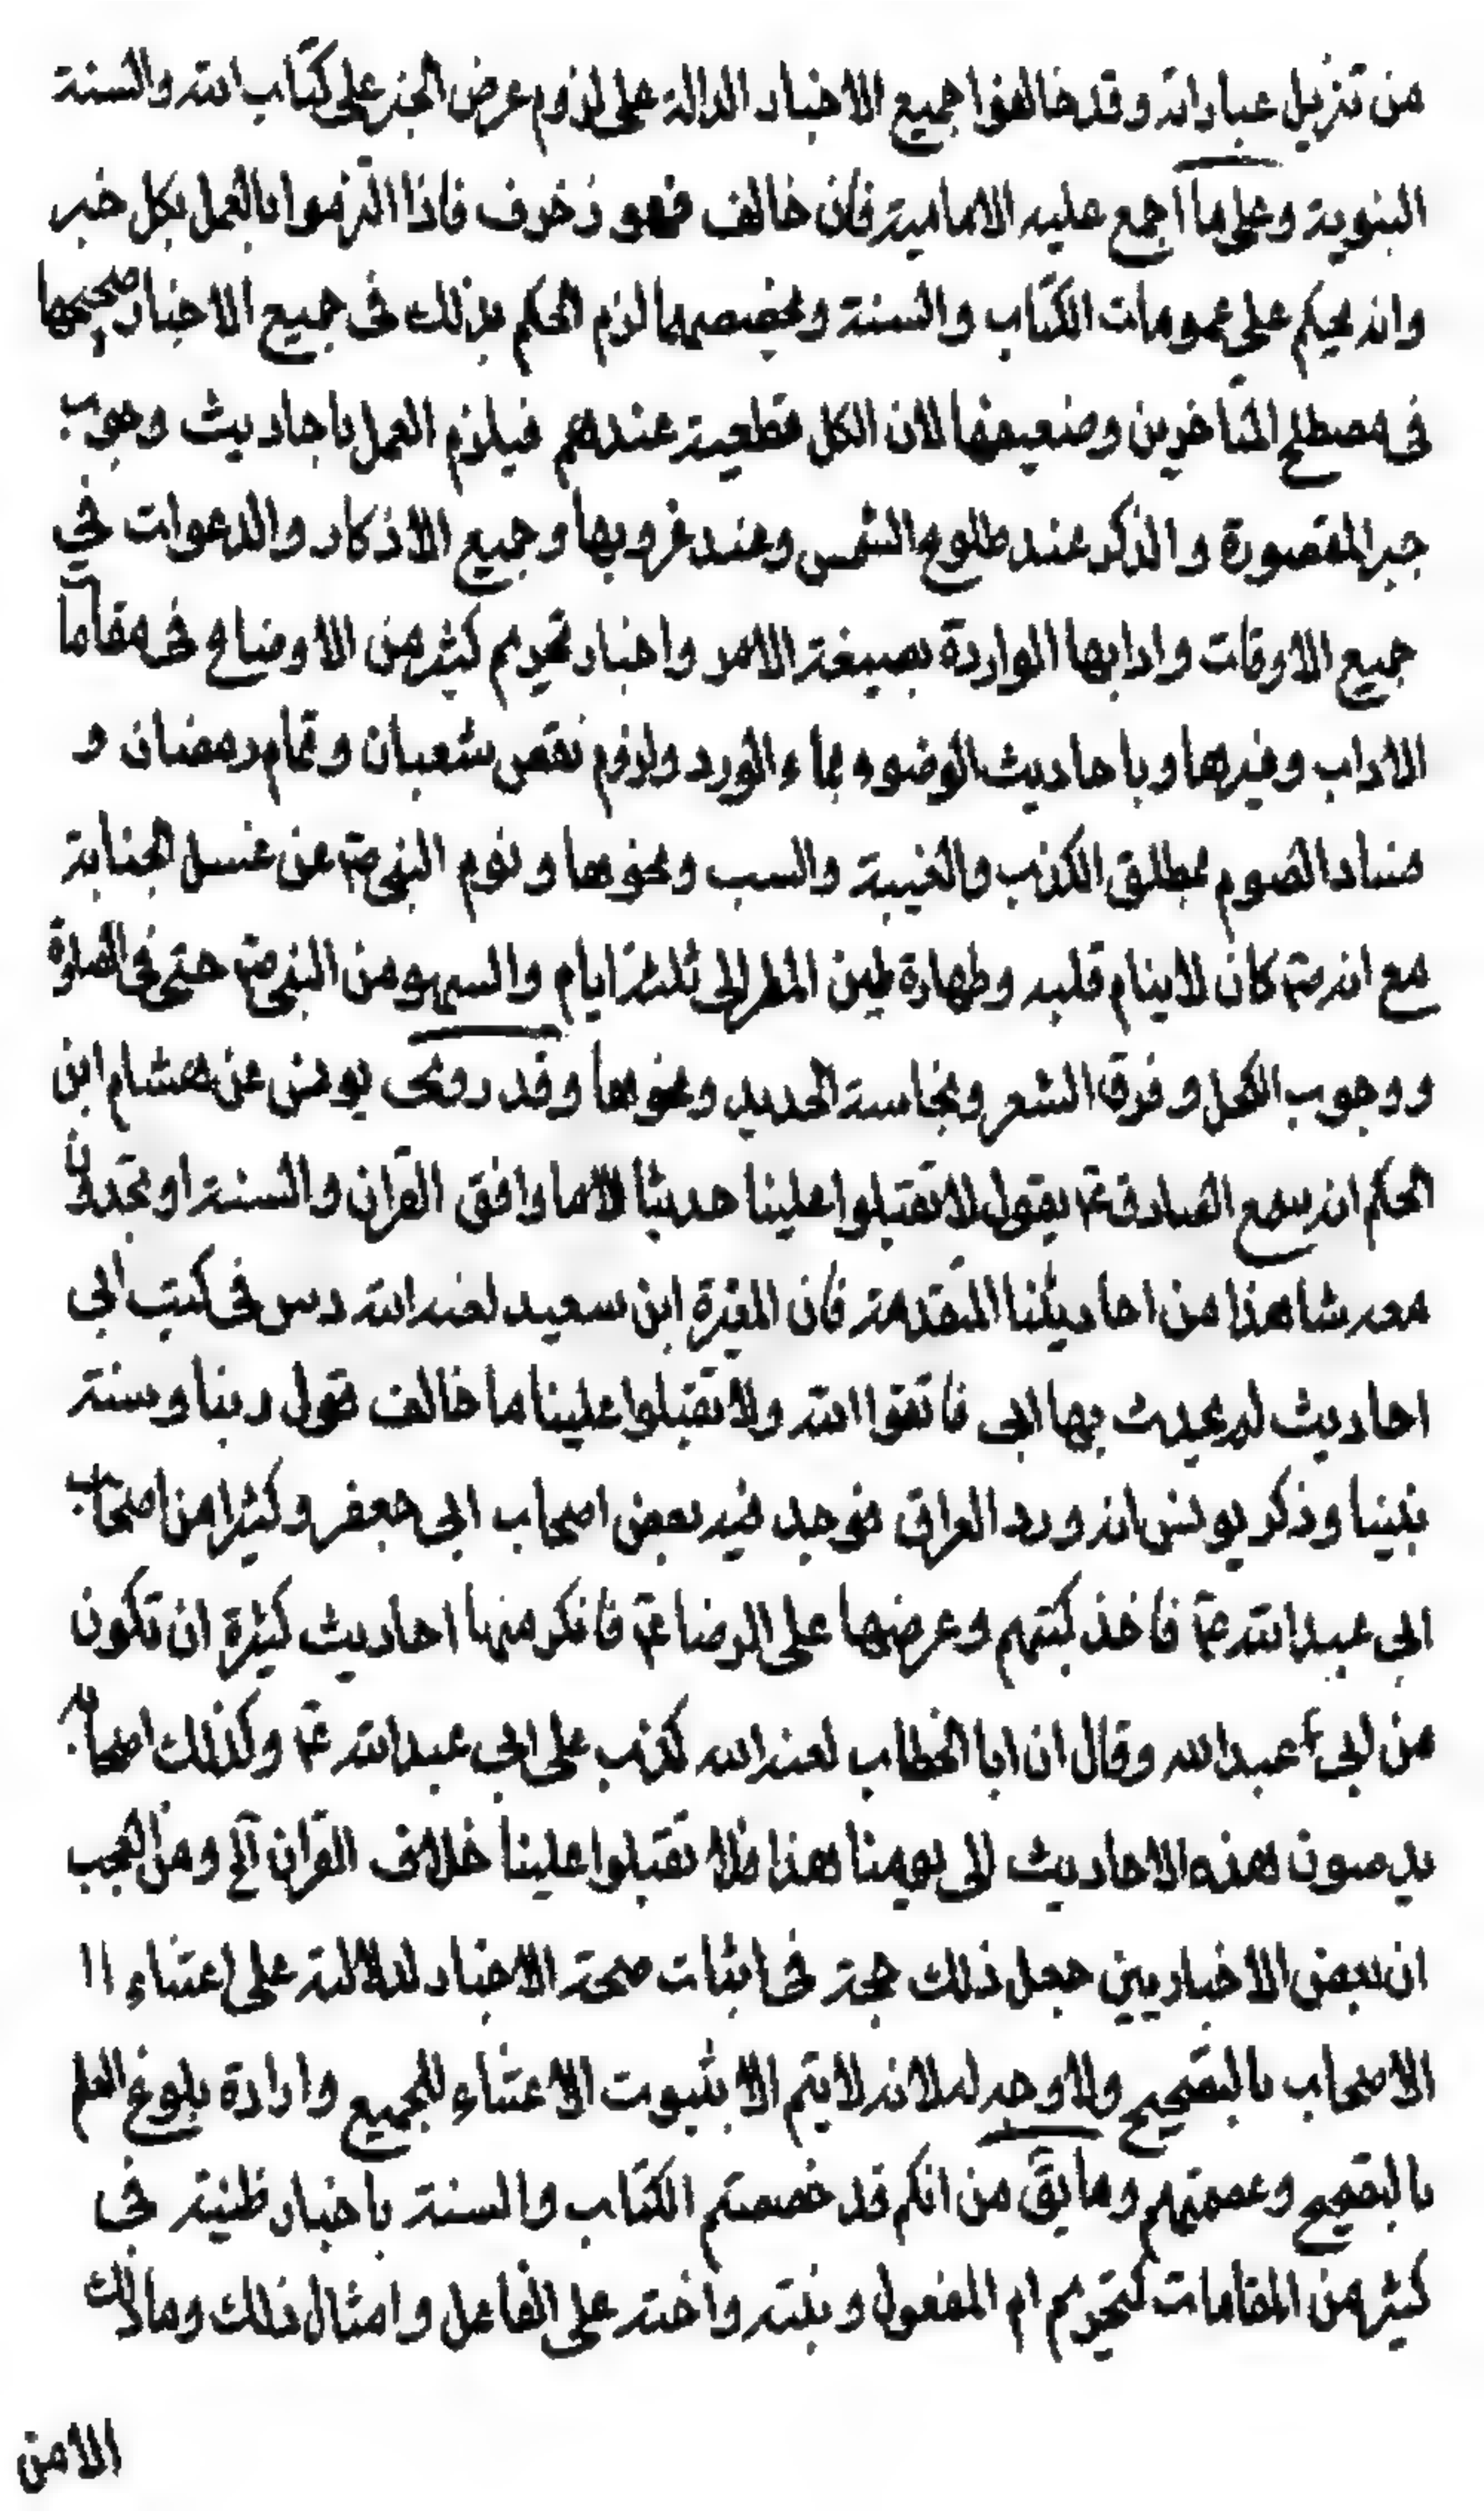 من تنزيل عباراته وقد خالفوا جميع الاخبار الدالة على لزوم عرض الخبر على كتاب الله والسنة
النبوية وعلى ما اجمع عليه الامامية فان خالف فهو زخرف فاذا التزموا بالعمل بكل خبر
وانه يحكم على عمومات الكتاب والسنة ويخصصهما لزم الحكم بذلك فى جميع الاخبار صحيحها
فى مصطلح المتأخرين وضعيفها لان الكل قطعية عندهم فيلزم العمل باحاديث وجوب
جبر المقصورة والذكر عند طلوع الشمس وعند غروبها وجميع الاذكار والدعوات في
جميع الاوقات وادابها الواردة بصيغة الامر واخبار تحريم كثير من الاوضاع فى مقامات
الاداب وغيرها وباحاديث الوضوء بماء الورد ولزوم نقص شعبان وتمام رمضان و
فساد الصوم بمطلق الكذب والغيبة والسب ونحوها ونوم النبى ص عن غسل الجنابة
مع انه ص كان لا ينام قلبه وطهارة طين المطر الى ثلثة ايام والسهو من النبى ص حتى فى الصلوة
ووجوب الكحل وفرق الشعر ونجاسة الحديد ونحوها وقد روى يونس عن هشام ابن
الحكم انه سمع الصادق ع يقول لا تقبلوا علينا حديثا الا ما وافق القران والسنة او تجدون
معه شاهدا من احاديثنا المتقدمة فان المغيرة ابن سعيد لعنه الله دس فى كتب ابي
احاديث لم يحدث بها ابى فاتقوا الله ولا تقبلوا علينا ما خالف قول ربنا وسنة
نبينا وذكر يونس انه ورد العراق فوجد فيه بعض اصحاب ابى جعفر وكثيرا من اصحاب
ابي عبد الله ع فاخذ كتبهم وعرضها على الرضا ع فانكر منها احاديث كثيرة ان تكون
من ابى عبد الله وقال ان ابا الخطاب لعنه الله كذب على ابي عبد الله ع وكذلك اصحابه
يدسون هذه الاحاديث الى يومنا هذا فلا تقبلوا علينا خلاف القران آلخ ومن العجب
ان بعض الاخباريين جعل ذلك حجة فى اثبات صحة الاخبار لدلالته على اعتناء اا
الاصحاب بالتصحيح ولا وجه له لانه لا يتم الا بثبوت الاعتناء للجميع وارادة بلوغ العلم
بالتصحيح وعصمتهم وما يق من انكم قد خصصتم الكتاب والسنة باخبار ظنية في
كثير من المقامات كتحريم ام المفعول وبنته واخته على الفاعل وامثال ذلك وما ذلك
الا من